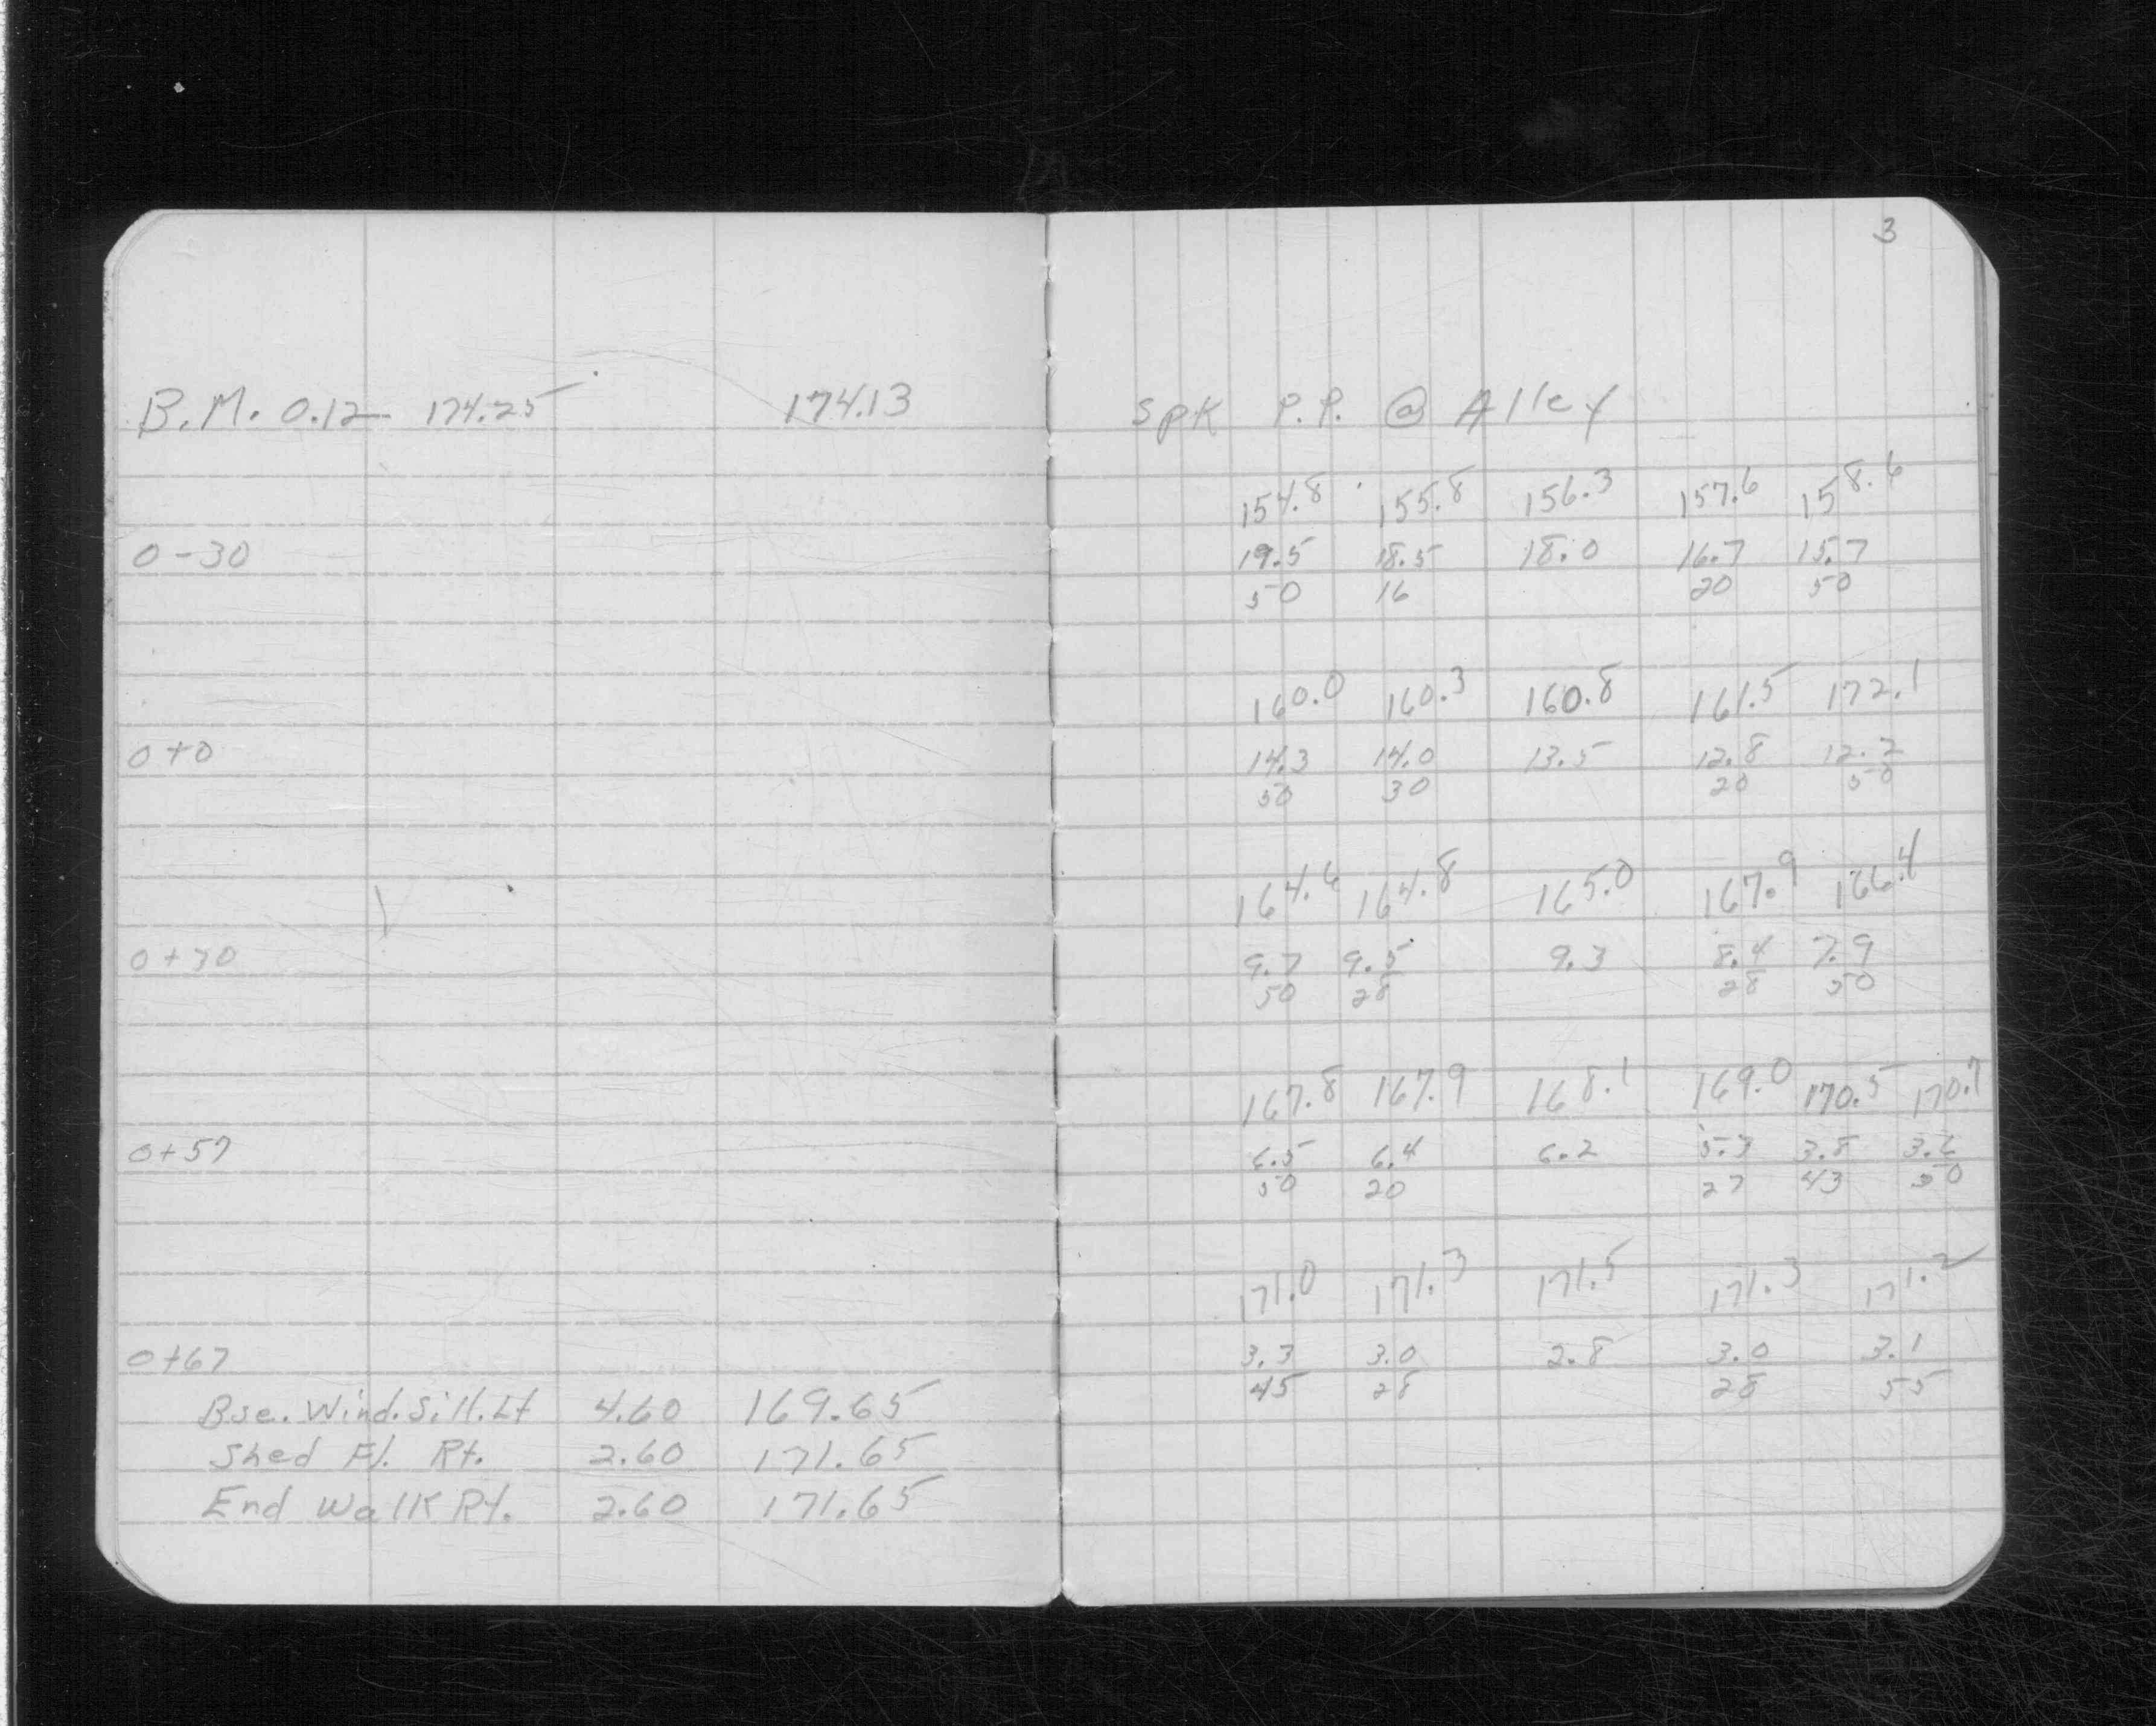 3
B.M. 0.12 174.25 174.13 Spk P.P. @ Alley
154.8 155.8 156.3 157.6 158.6
0-30 19.5 18.5 18.0 16.7 15.7
50 16 20 50
160.0 160.3 160.8 161.5 172.1
0+0 14.3 14.0 13.5 12.8 12.2
50 30 20 50
164.6 164.8 165.0 167.9 166.4
0+30 9.7 9.5 9.3 8.4 7.9
50 28 28 50
167.8 167.9 168.1 169.0 170.5 170.7
0+57 6.5 6.4 6.2 5.3 3.8 3.6
50 20 27 43 50
171.0 171.3 171.5 171.3 171.2
0+67 3.3 3.0 2.8 3.0 3.1
45 28 28 55
Bse. Wind. Sill. Lt 4.60 169.65
Shed Fl. Rt. 2.60 171.65
End Walk Rt. 2.60 171.65